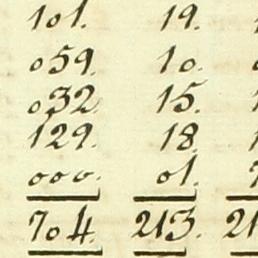 101. 19.
059. 10.
032 15.
129. 18.
000. 01.
704. 213. 21